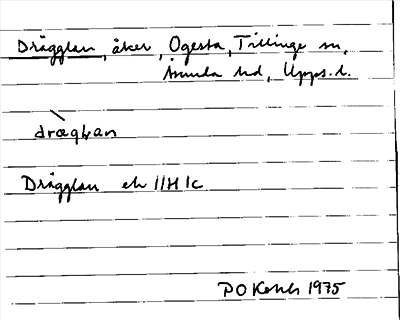 Drägglan, åker, Ogesta, Tillinge sn,
Åsunda hd, Upps. l.
drægLan
Drägglan ek 11H1c
P O 1975